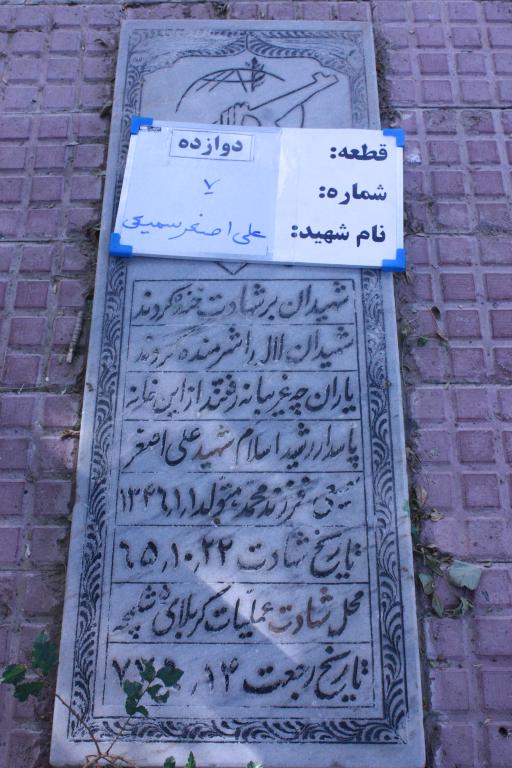 قطعه: دوازده
شماره: ۷
نام شهید: علی اصغر سمیعی
شهیدان بر شهادت خنده کردند
شهیدان لاله را شرمنده کردند
یاران چه غریبانه رفتند از این خانه
پاسدار رشید اسلام شهید علی اصغر
سمیعی فرزند محمد متولد ۱٫۱٫۱۳۴۶
تاریخ شهادت ۲۲٫۱۰٫۶۵
محل شهادت عملیات کربلای ۵ شلمچه
تاریخ رجعت ۱۴